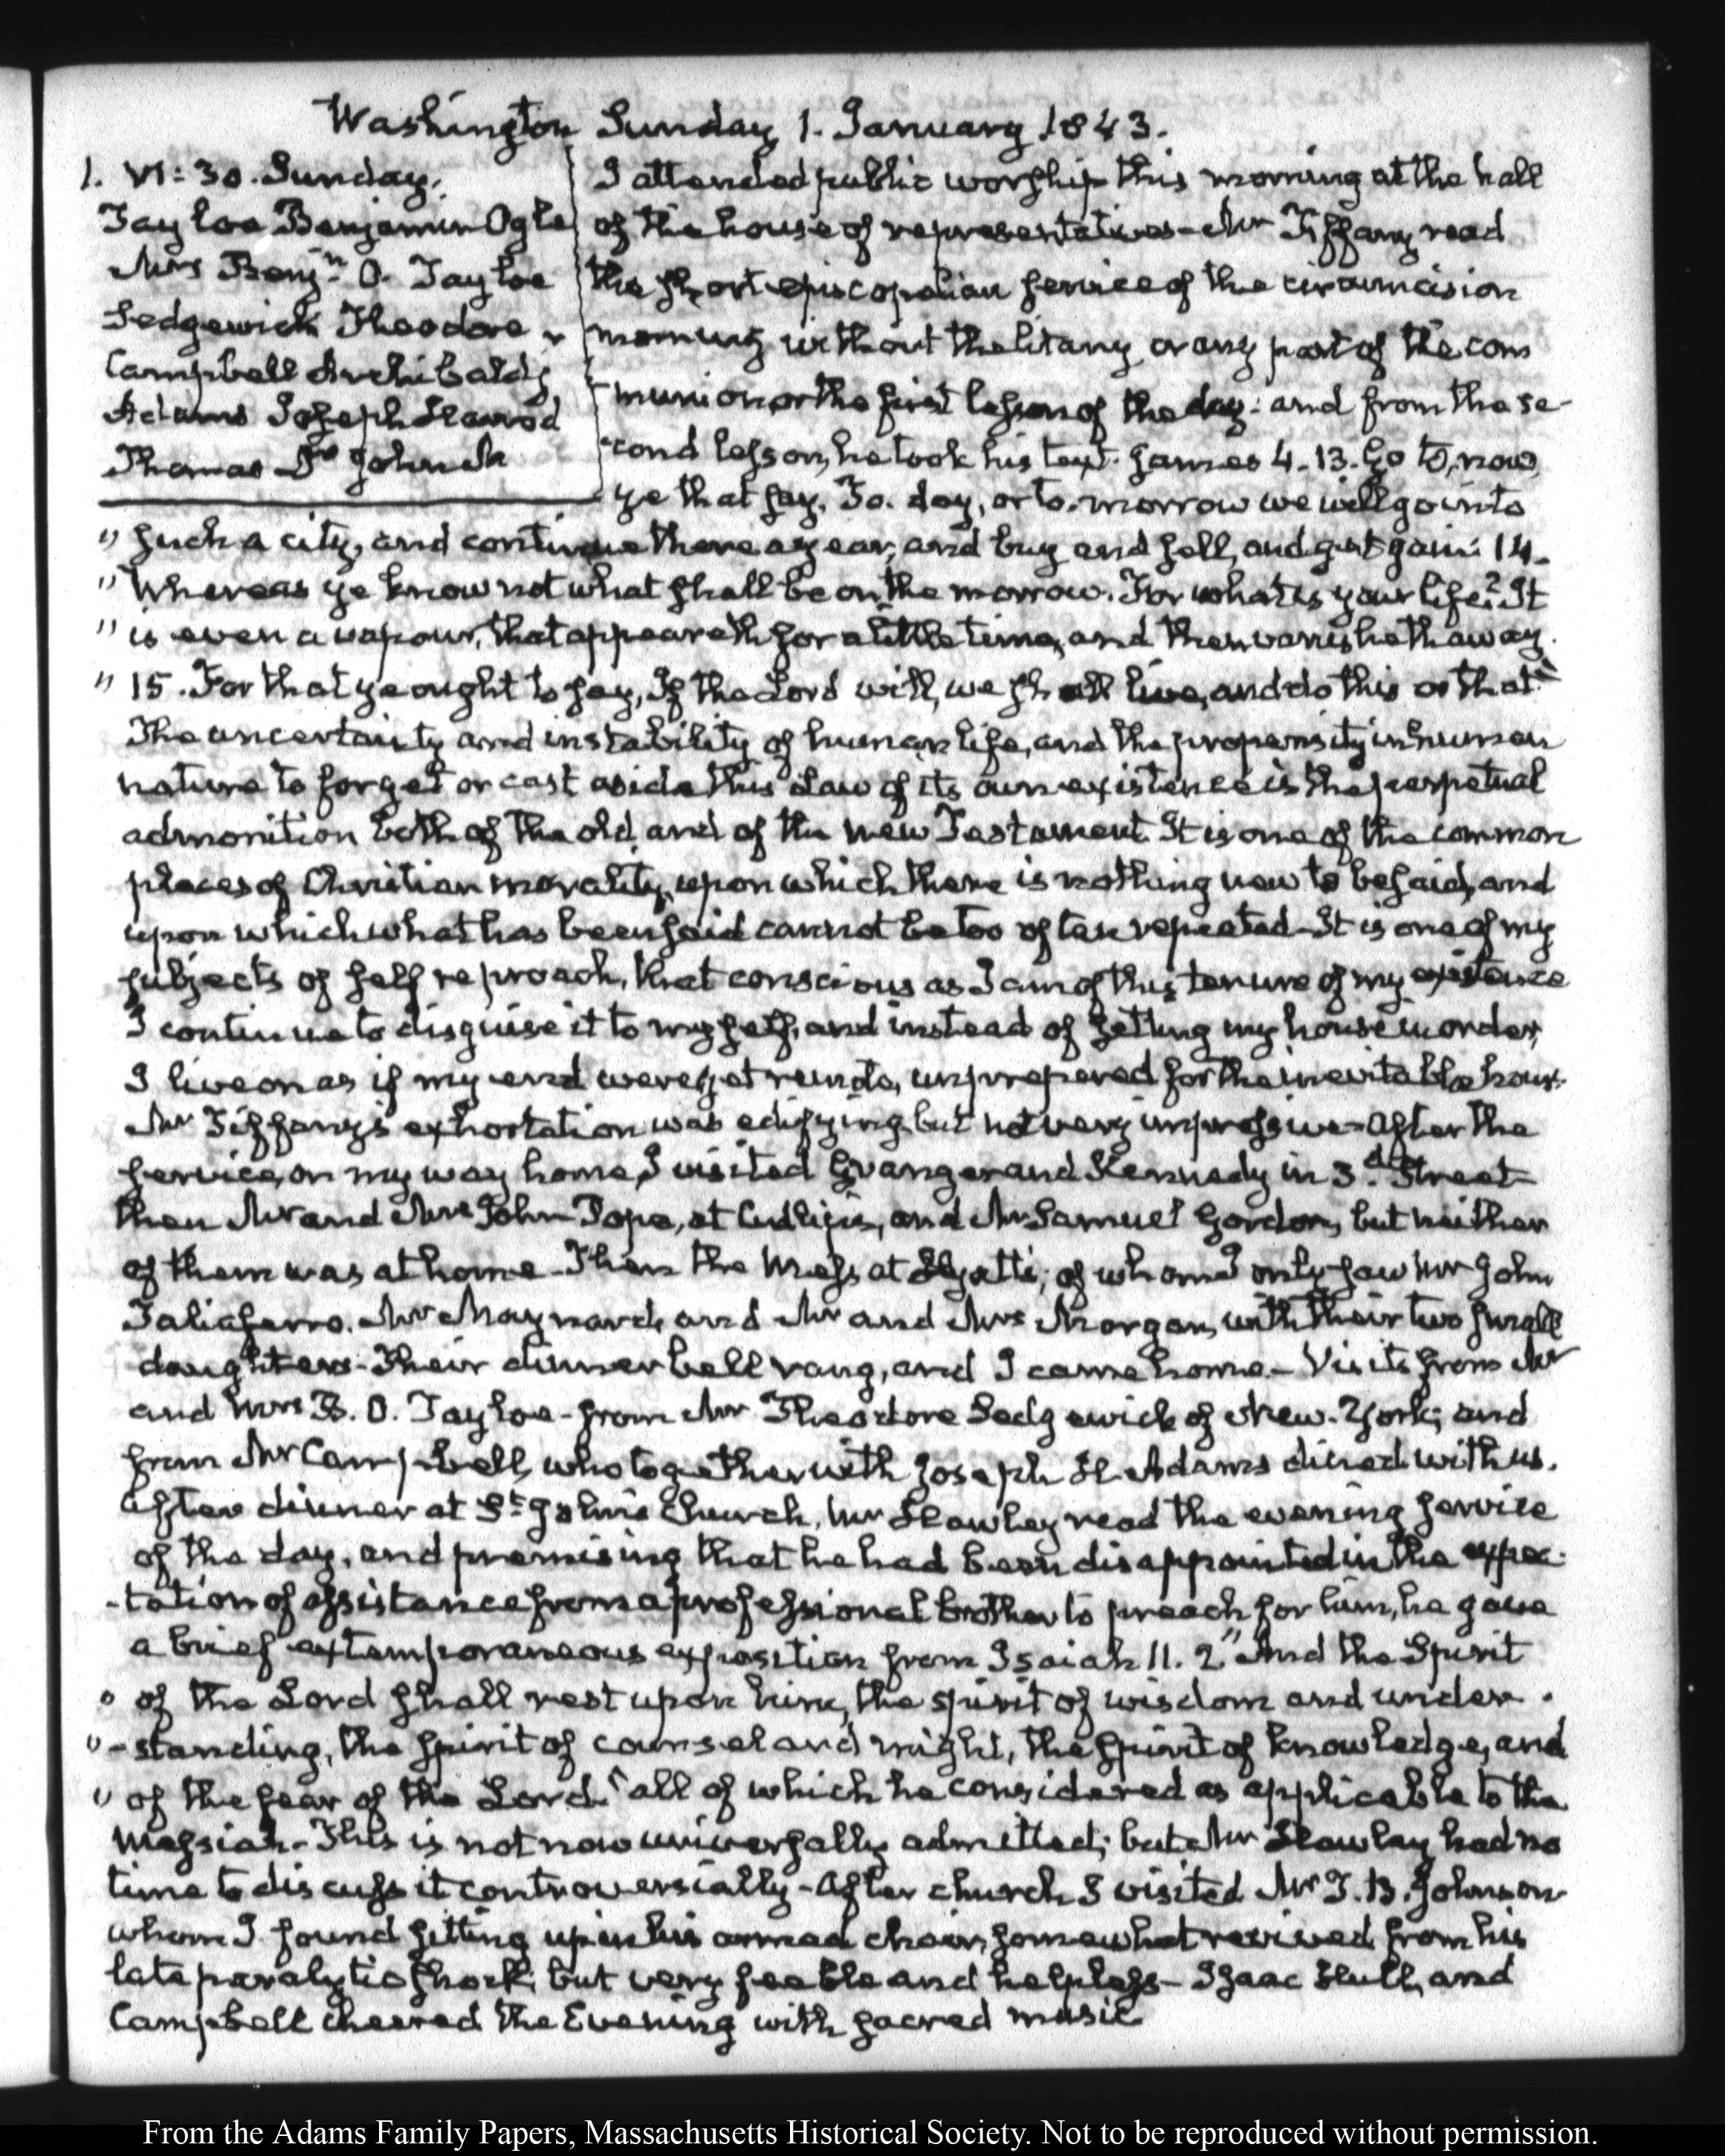 Washington Sunday 1. January 1843.
1. VI: 30. Sunday.
Tayloe Benjamin Ogle
Mrs Benjn. O. Tayloe
Sedgewick Theodore
Campbell Archibald
Adams Joseph Harrod
Thomas Dr John M
I attended public worship this morning at the hall
of the house of representatives – Mr Tiffany read
the short episcopalian service of the circumcision
morning without the litany or any part of the com
munion or the first lesson of the day: and from the se-
cond lesson, he took his text. James 4. 13. Go to, now,
ye that say, To. day, or to. morrow we will go into
" such a city, and continue there a year, and buy and sell, and get gain: 14.
" Whereas ye know not what shall be on the morrow. For what is your life? It
" is even a vapour, that appeareth for a little time, and then vanisheth away.
" 15. For that ye ought to say, If the Lord will, we shall live, and do this or that"
The uncertainty and instability of human life, and the propensity in human
nature to forget or cast aside this Law of its own existence is the perpetual
admonition both of the old and of the new Testament. It is one of the common
places of Christian morality, upon which there is nothing new to be said, and
upon which what has been said cannot be too often repeated – It is one of my
subjects of self reproach, that conscious as I am of this tenure of my existence
I continue to disguise it to myself, and instead of setting my house in order,
I live on as if my end were yet remote, unprepared for the inevitable hour.
Mr Tiffany's exhortation was edifying but not very impressive – After the
service, on my way home, I visited Granger and Kennedy in 3.d Street –
then Mr and Mrs John Pope, at and Mr Samuel Gordon, but neither
of them was at home – Then the Mess at Hyatt's; of whom I only saw Mr John
Taliaferro. Mr Maynard, and Mr and Mrs Morgan, with their two small
daughters – Their dinner bell rang, and I came home. – Visits from Mr
and Mrs B. O. Tayloe – from Mr Theodore Sedgewick of New-York; and
from Mr Campbell, who together with Joseph H. Adams dined with us.
After dinner at St. John's Church, Mr Hawley read the evening service
of the day, and premising that he had been disappointed in the expec-
-tation of assistance from a professional brother to preach for him, he gave
a brief extemporaneous exposition from Isaiah 11. 2 "And the Spirit
" of the Lord shall rest upon him, the spirit of wisdom and under-
" -standing, the spirit of counsel and might, the spirit of knowledge, and
" of the fear of the Lord." all of which he considered as applicable to the
Messiah – This is not now universally admitted; but Mr Hawley had no
time to discuss it controversially – After church I visited Mr T. B. Johnson
whom I found sitting up in his armed chair, somewhat revived from his
late paralytic shock; but very feeble and helpless – Isaac Hull, and
Campbell cheered the Evening with sacred music
From the Adams Family Papers, Massachusetts Historical Society. Not to be reproduced without permission.